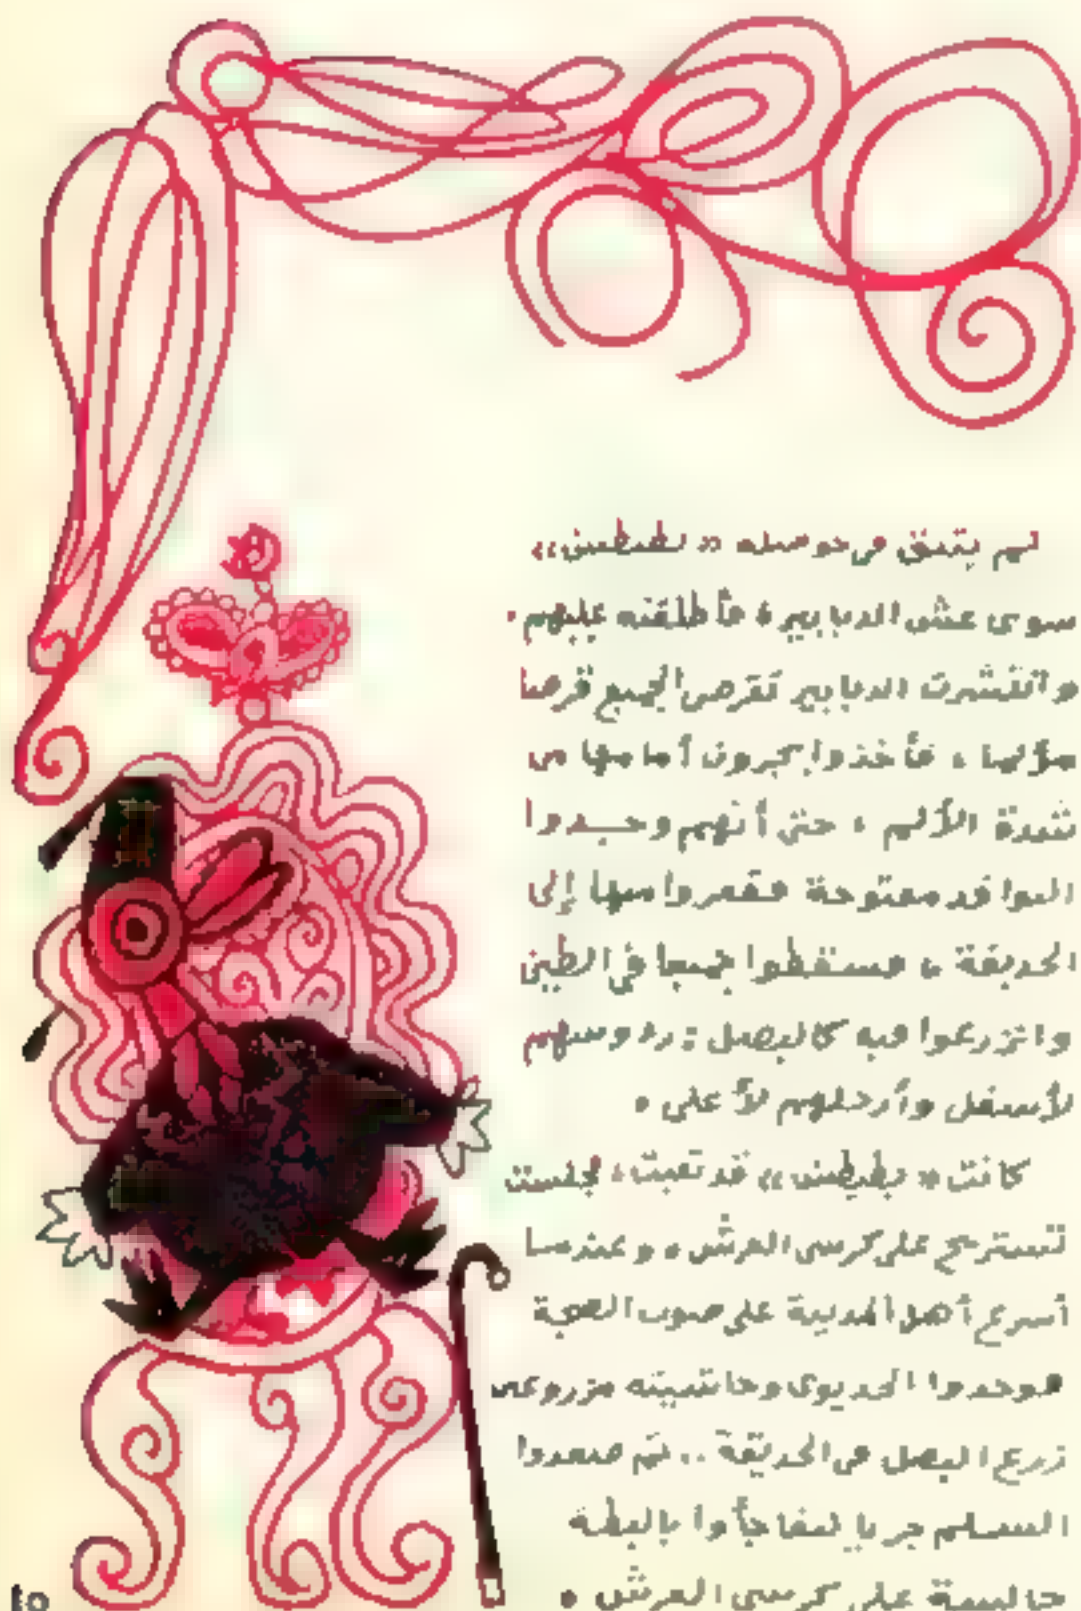 لم يتبق فى حوصلة « بطبطين »
سوى عش الدبابير ، فأطلقته عليهم .
وانتشرت الدبابير تقرص الجميع قرصا
مؤلما ، فأخذوا يجرون أمامها من
شدة الألم ، حتى أنهم وجــدوا
النوافذ مفتوحة فقفزوا منها إلى
الحديقة ، فسقطوا جميعا في الطين
وانزرعوا فيه كالبصل : رءوسهم
لأسفل وأرجلهم لأعلى .
كانت « بطبطين » قد تعبت ، فجلست
تستريح على كرسى العرش ، وعندما
أسرع أهل المدينة على صوت الضجة
فوجدوا الخديوى وحاشيته مزروعى
زرع البصل فى الحديقة .. ثم صعدوا
السلم جريا ليفاجأوا بالبطة
جالسة على كرسى العرش .